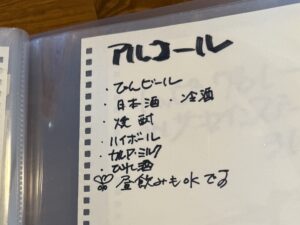 アルコール
・びんビール
・日本酒・冷酒
・焼酎
・ハイボール
・カルアミルク
・ひれ酒
昼飲みもOKです